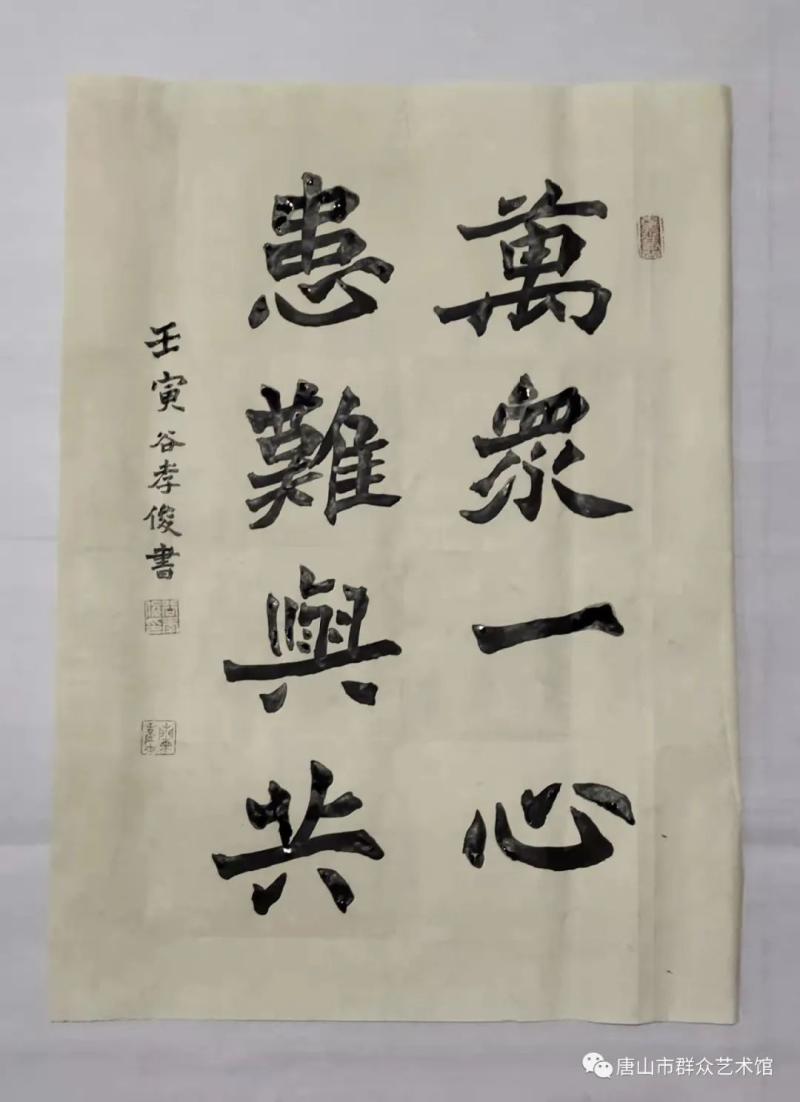 萬眾一心
患難與共
壬寅谷孝俊書
唐山市群众艺术馆